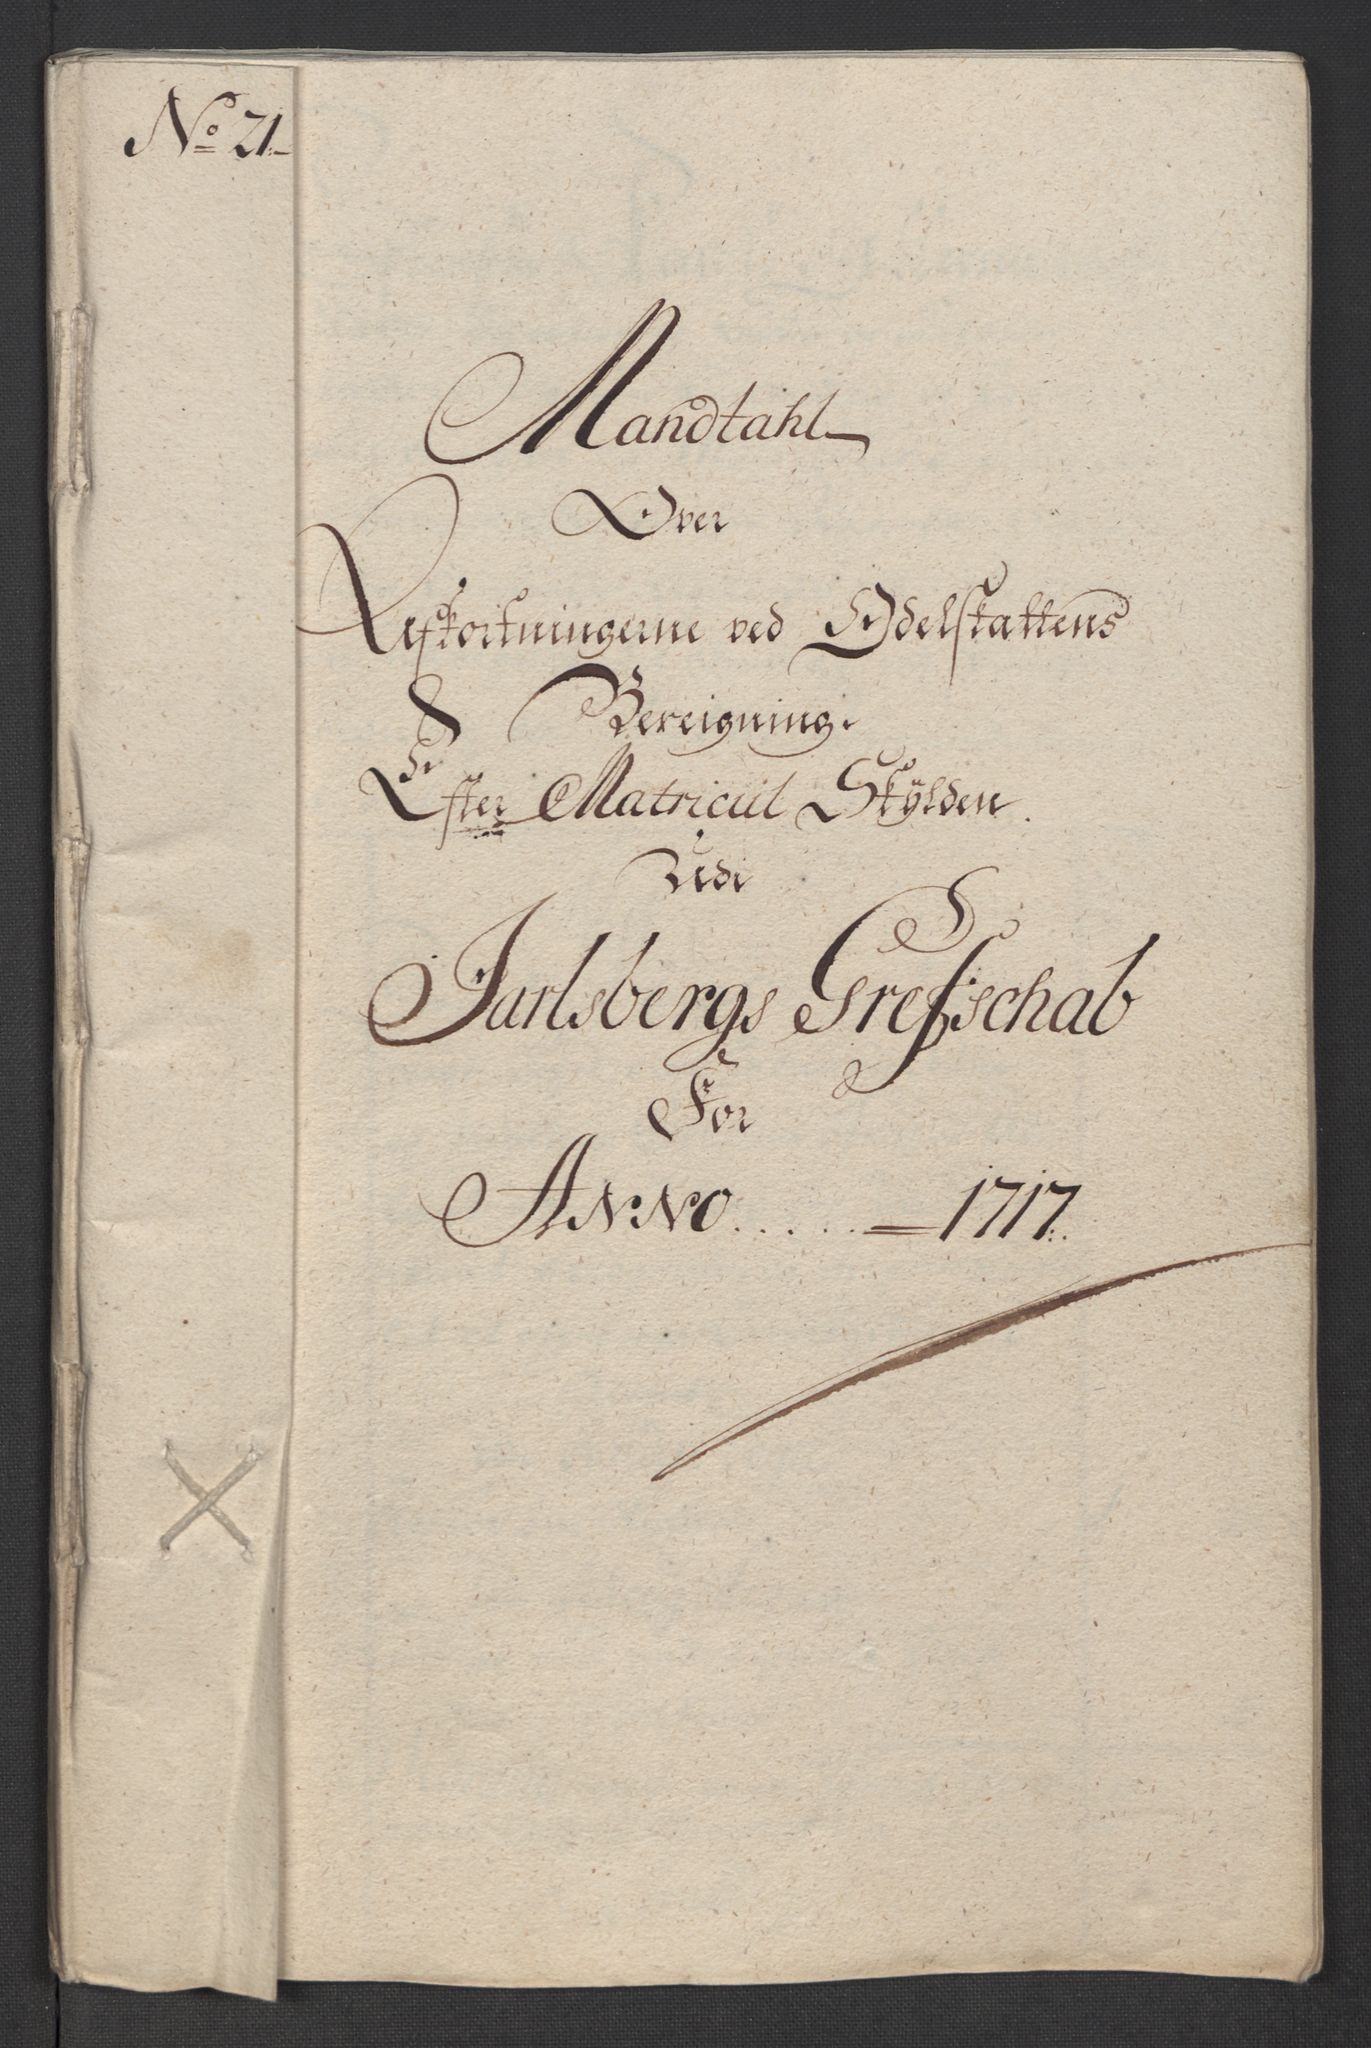 No 21
Mandtahl
Over
Afkortningerne ved Ødelskattens
Bereigning
Efter Matricul Skÿlden.
Udi
Jarlsbergs Grefschab
For
ANNO ..... = 1717.